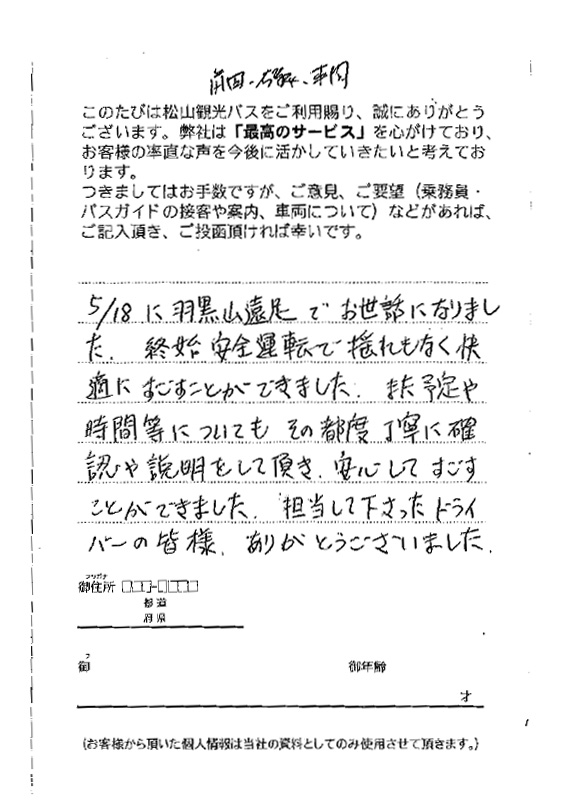 前田、
このたびは松山観光バスをご利用賜り、誠にありがとう
ございます。弊社は「最高のサービス」を心がけており、
お客様の率直な声を今後に活かしていきたいと考えてお
ります。
つきましてはお手数ですが、ご意見、ご要望（乗務員・
バスガイドの接客や案内、車両について）などがあれば、
ご記入頂き、ご投函頂ければ幸いです。
5/18に羽黒山遠足でお世話になりまし
た。終始安全運転で揺れもなく快
適にすごすことができました。また予定や
時間等についてもその都度丁寧に確
認や説明をして頂き、安心してすごす
ことができました。担当して下さったドライ
バーの皆様、ありがとうございました。
フリガナ
御住所 □□□-□□□□
都道
府県
フ
御 御年齢
才
（お客様から頂いた個人情報は当社の資料としてのみ使用させて頂きます。）